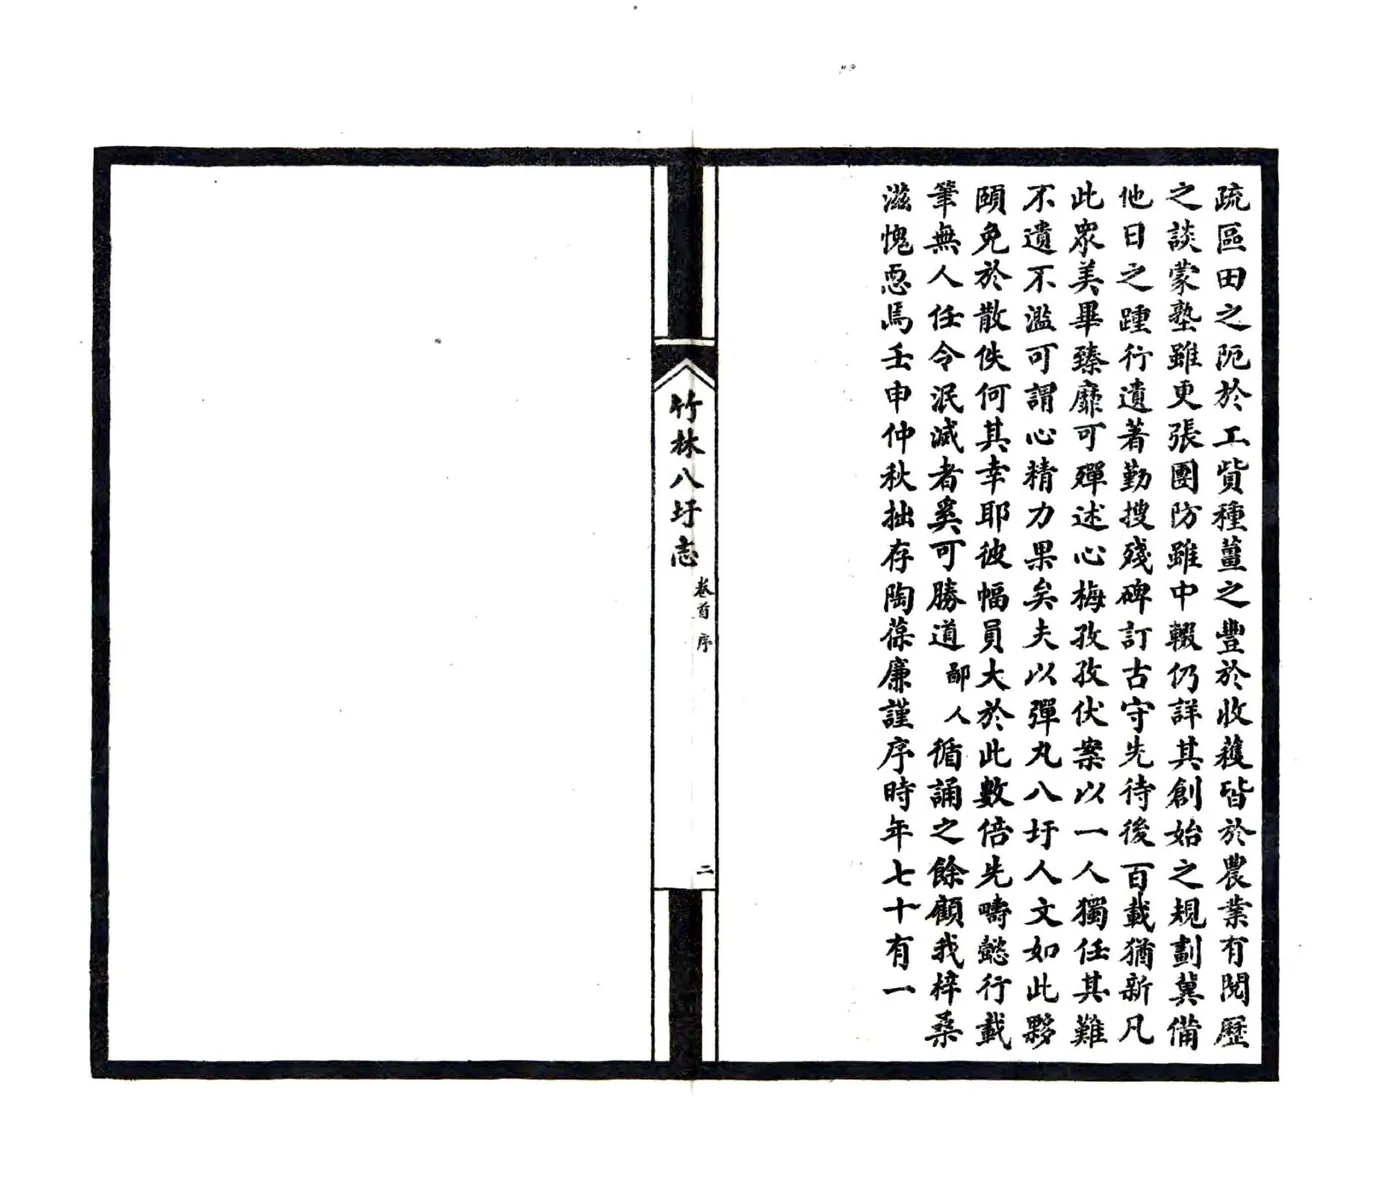 疏區田之阨於工貲種薑之豐於收穫皆於農業有閱歷
之談蒙塾雖更張團防雖中輟仍詳其創始之規劃冀備
他日之踵行遺著勤搜殘碑訂古守先待後百載猶新凡
此眾美畢臻靡可殫述心梅孜孜伏案以一人獨任其難
不遺不濫可謂心精力果矣夫以彈丸八圩人文如此夥
頤免於散佚何其幸耶彼幅員大於此數倍先疇懿行載
筆無人任令泯滅者奚可勝道鄙人循誦之餘顧我梓桑
滋愧恧焉壬申仲秋拙存陶葆廉謹序時年七十有一
竹林八圩志
卷首 序
二